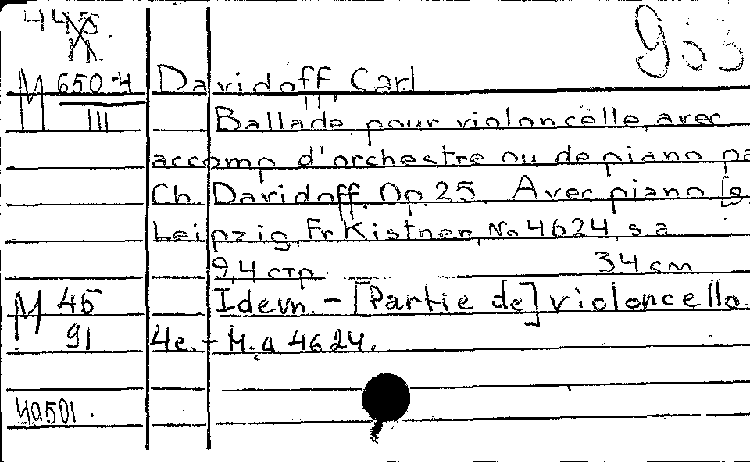 445.
933
M 650-4 Davidoff, Carl
III Ballade pour violoncelle, avec
accomp d'orchestre ou de piano pa
Ch. Davidoff. Op. 25. Avec piano
Leipzig, Fr Kistner, No 4624, s. a
9,4 стр. 34 cm
M 45 Idem. - [Partie de] violoncello.
91 4c. - H. д 4624.